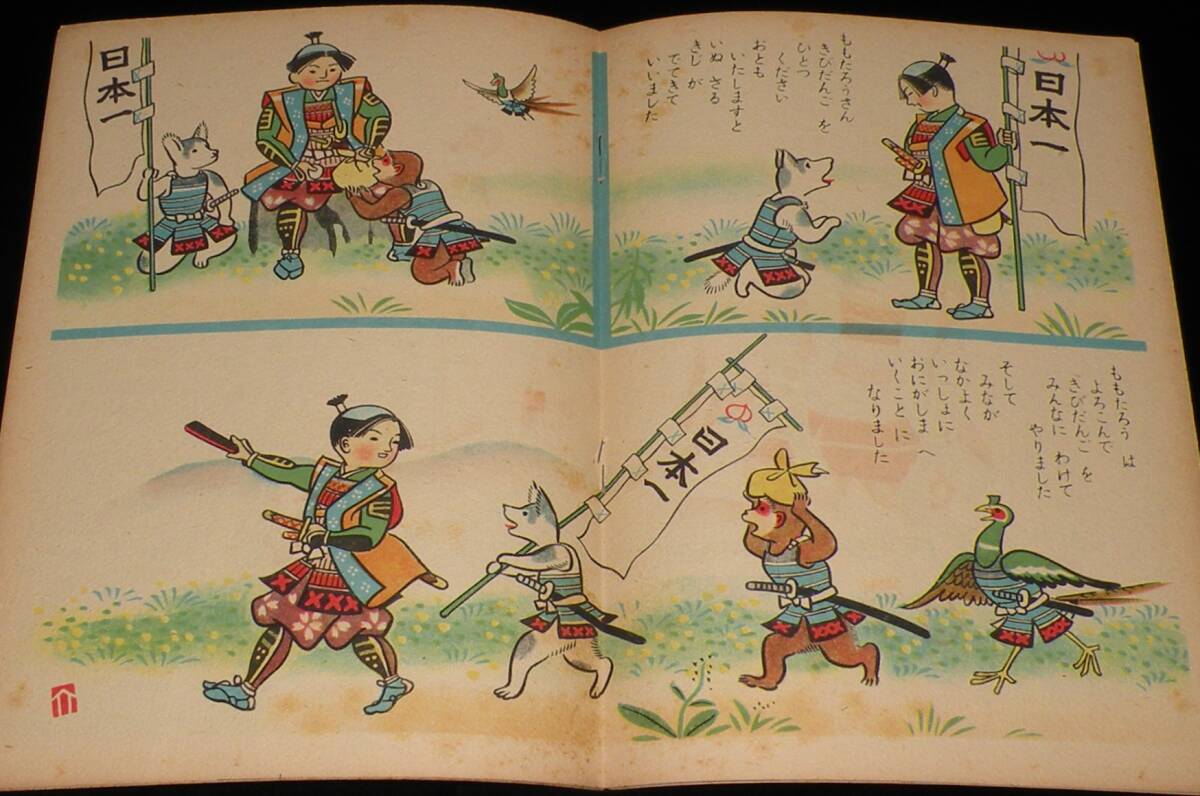 ももたろうさん
きびだんご を
ひとつ
ください
おとも
いたしますと
いぬ さる
きじ が
でてきて
いいました
日本一
日本一
ももたろう は
よろこんで
きびだんご を
みんなに わけて
やりました
そして
みなが
なかよく
いっしょに
おにがしま へ
いくこと に
なりました
日本一